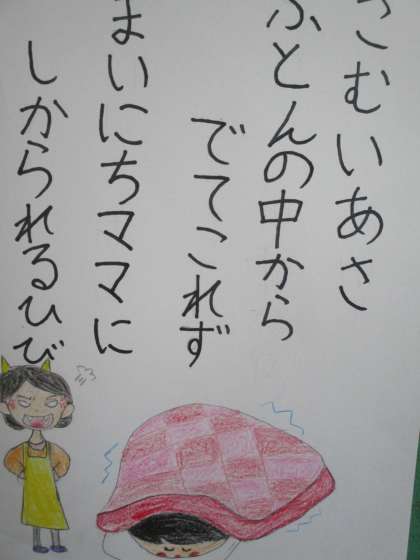 さむいあさ
ふとんの中から
でてこれず
まいにちママに
しかられるひび